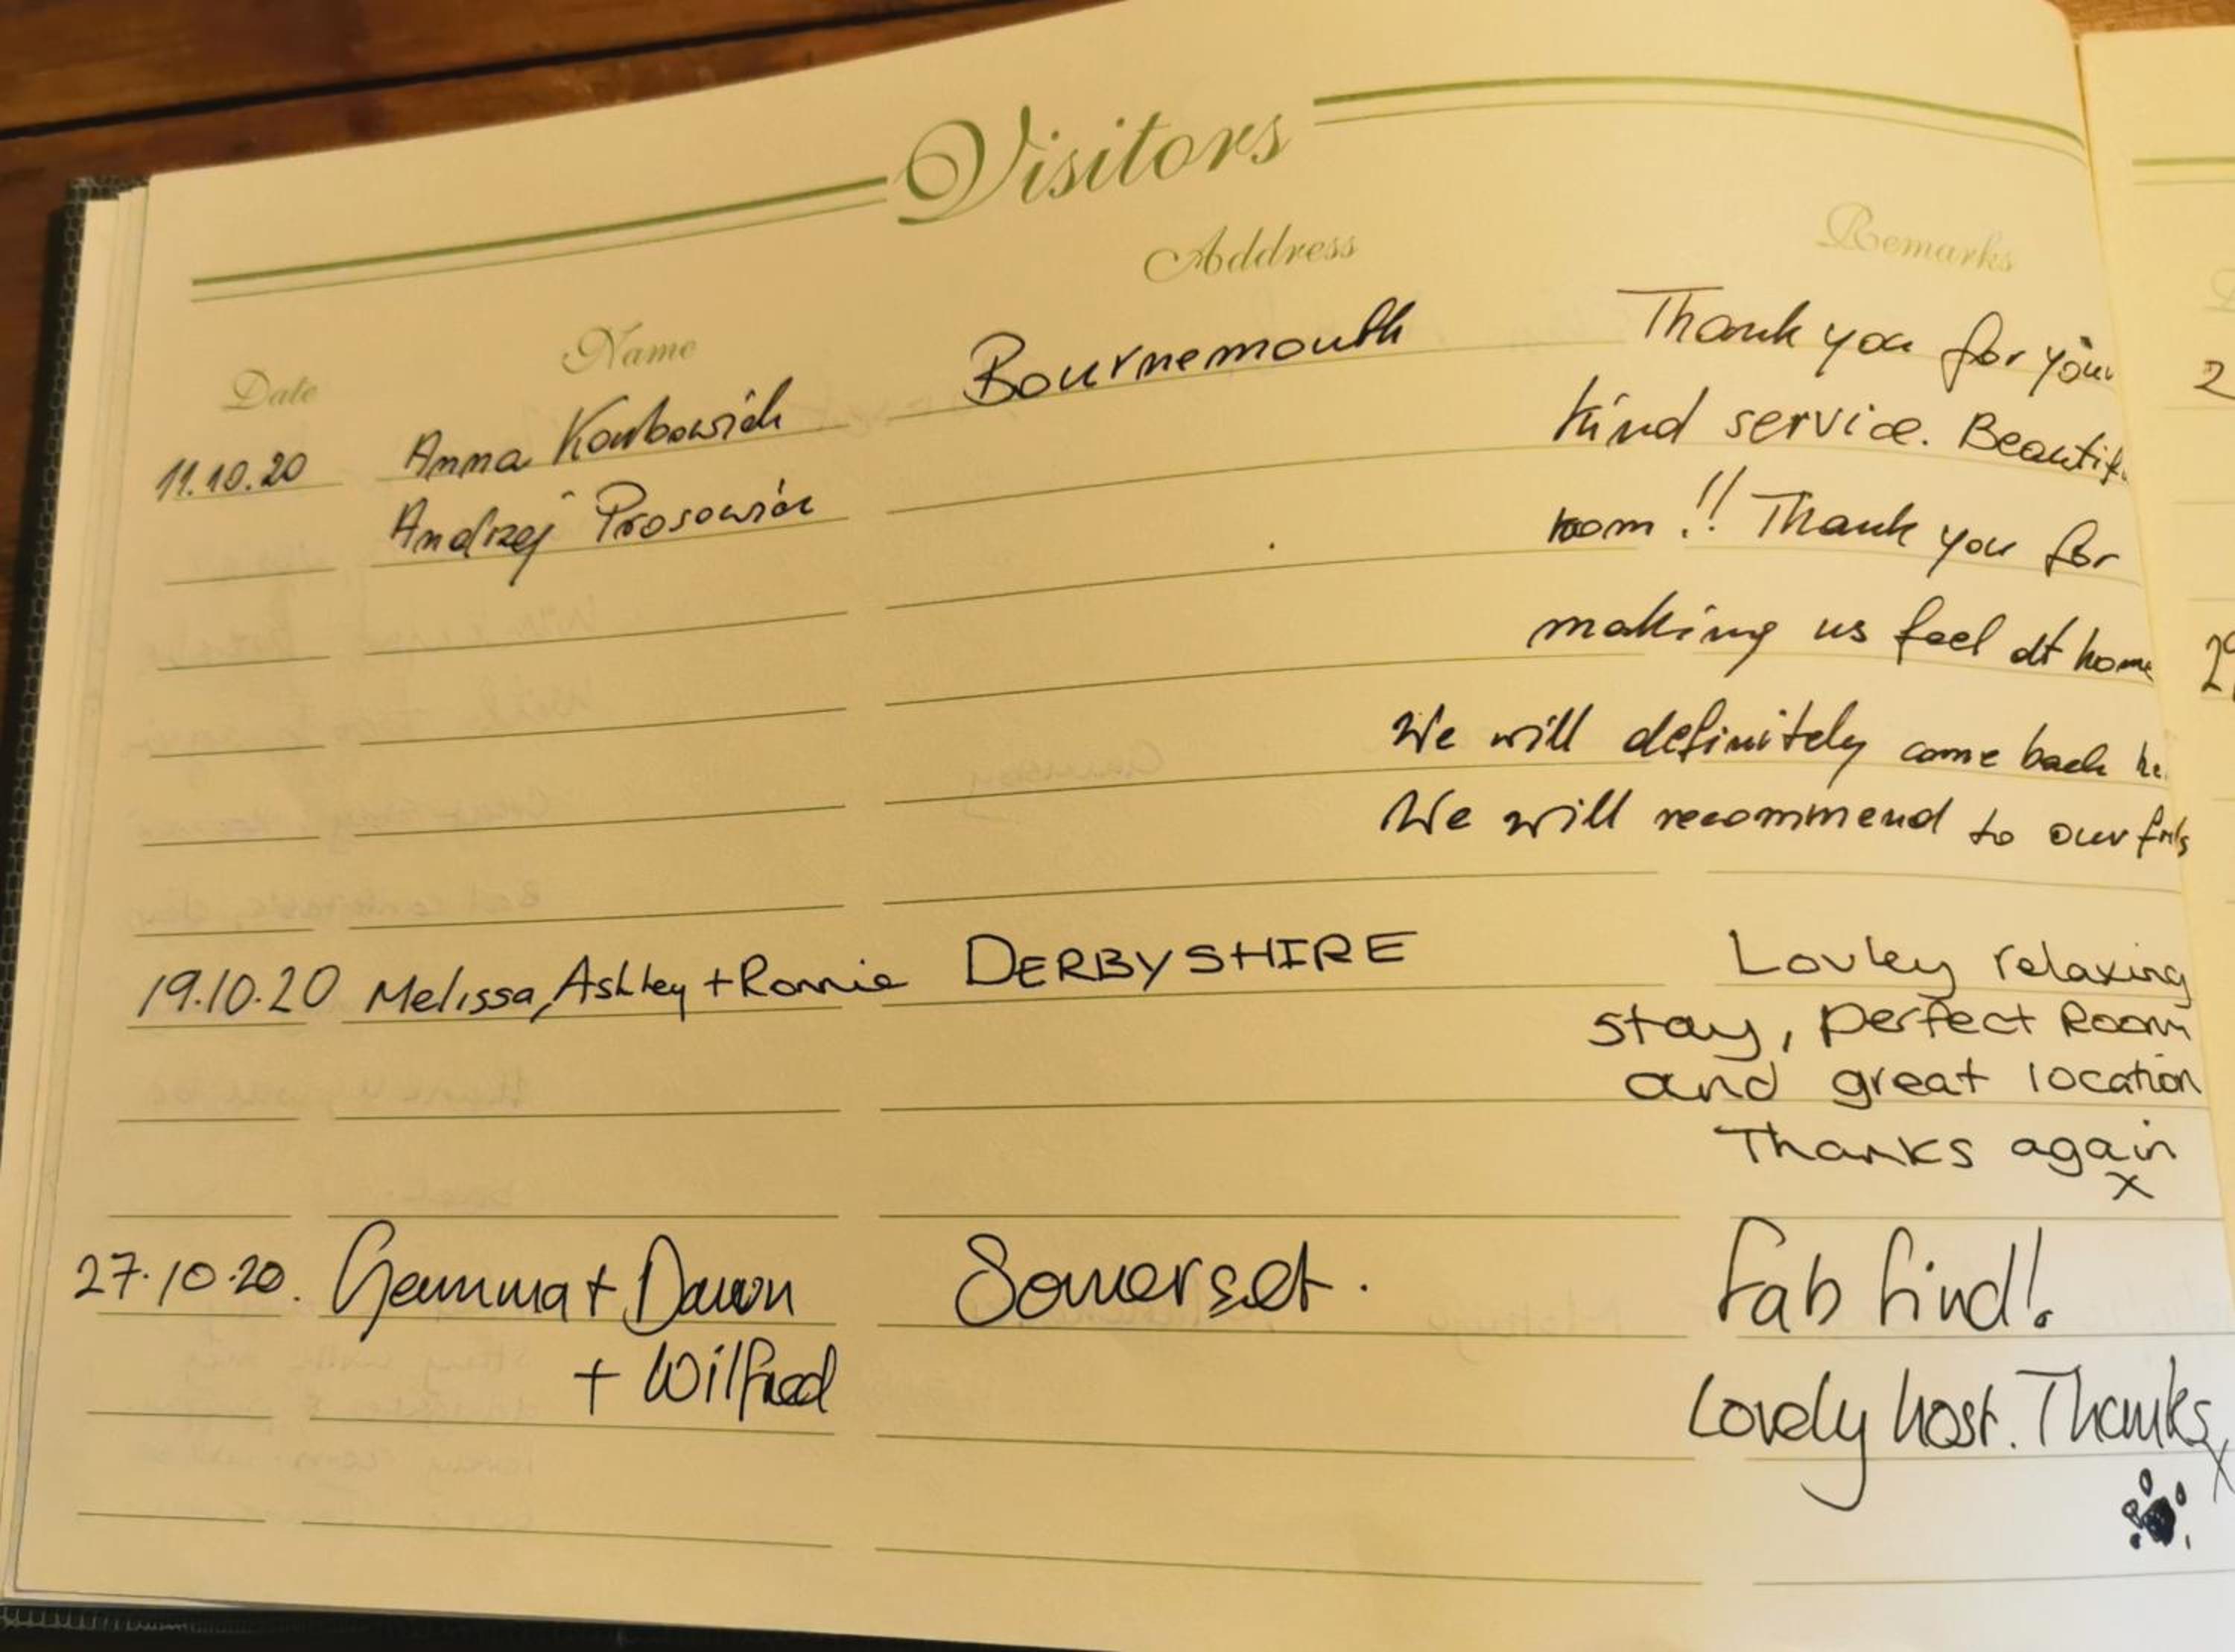 Visitors
Date Name Address Remarks
11.10.20 Anna Bournemouth Thank you for your
Andrzej kind service.
room!! Thank you for
making us feel at home
We will definitely come back
We will recommend to our
19.10.20 Melissa, Ashley + Ronnie DERBYSHIRE Lovley relaxing
stay, perfect Room
and great location
Thanks again
x
27.10.20. Gemma + Dawn Somerset. Fab find!
+ Wilfred Lovely host. Thanks
x